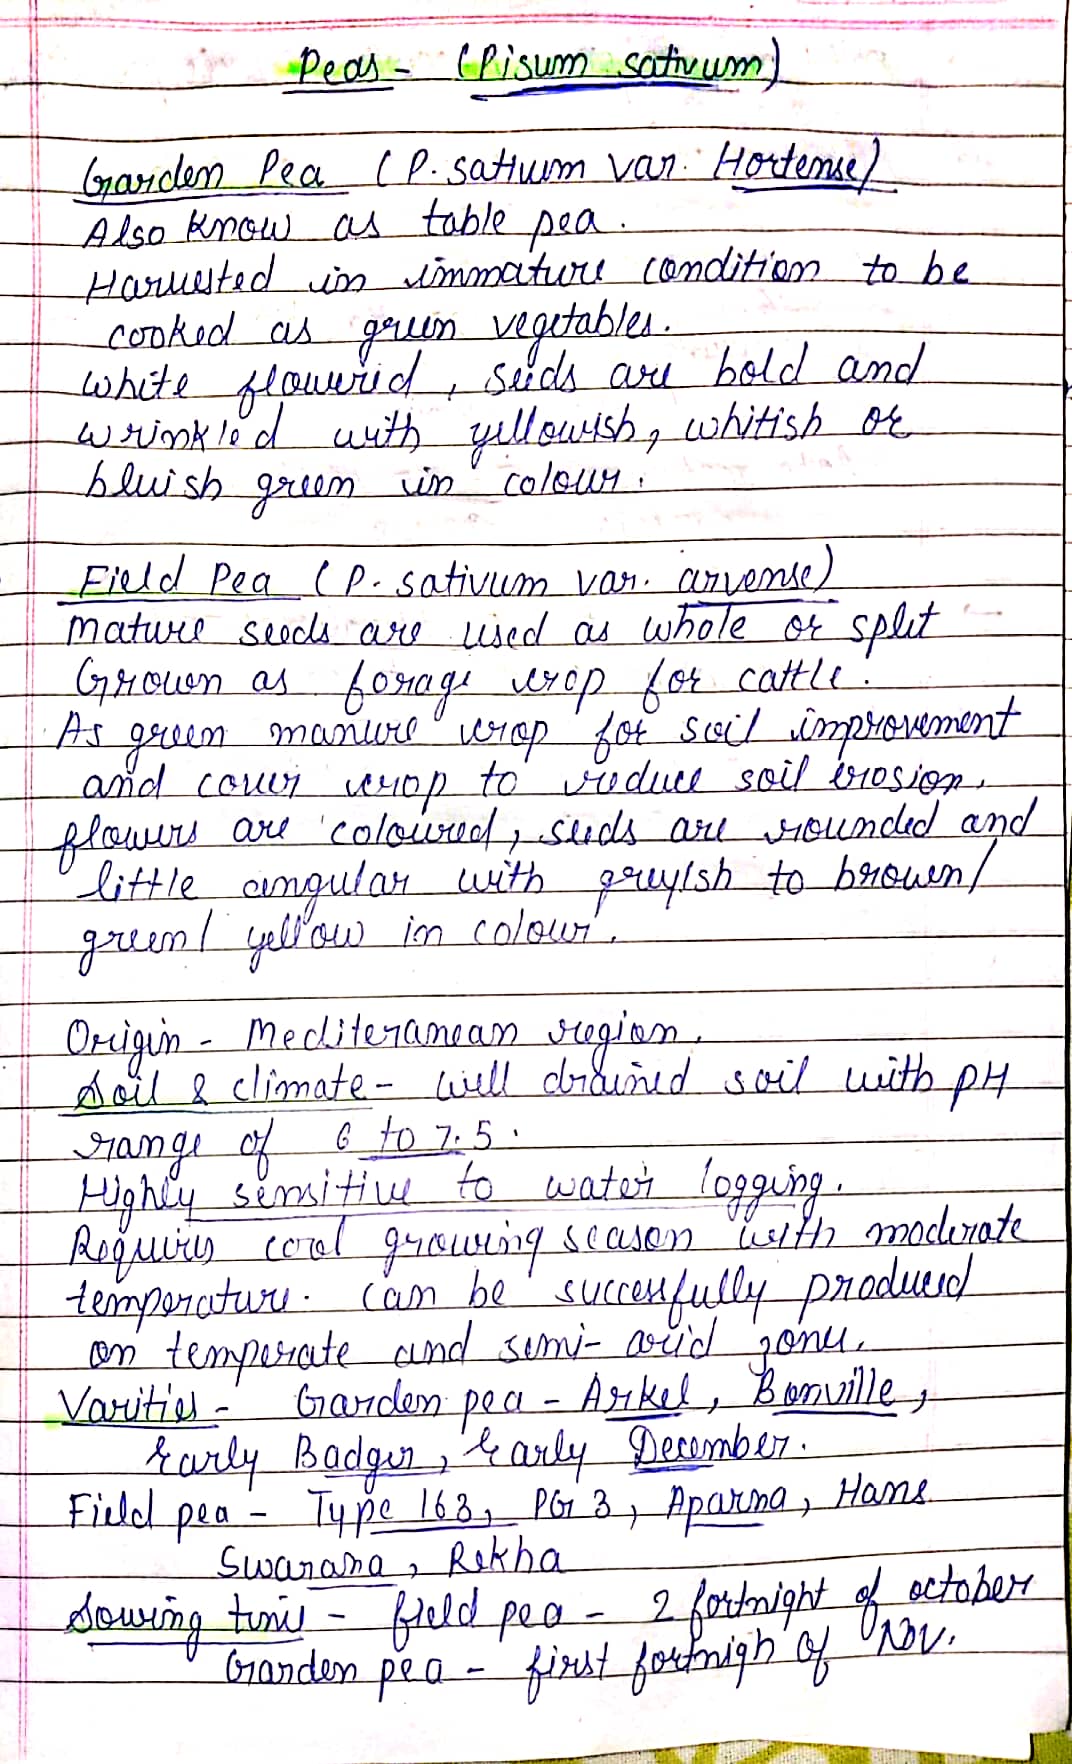 Peas - (Pisum sativum)
Garden Pea (P. sativum var. Hortense)
Also know as table pea.
Harvested in immature condition to be
cooked as green vegetables.
White flowered, seeds are bold and
wrinkled with yellowish, whitish or
bluish green in colour.
Field Pea (P. sativum var. arvense)
Mature seeds are used as whole or split
Grown as forage crop for cattle.
As green manure crop for soil improvement
and cover crop to reduce soil erosion.
flowers are coloured, seeds are rounded and
little angular with greyish to brown/
green/ yellow in colour.
Origin - Mediteranean region.
Soil & climate - well drained soil with pH
range of 6 to 7.5.
Highly sensitive to water logging.
Requires cool growing season with moderate
temperature. Can be successfully produced
on temperate and semi-arid zone.
Varities - Garden pea - Arkel, Bonville,
Early Badger, Early December.
Field pea - Type 163, PG 3, Aparna, Hans
Swarana, Rekha
Sowing time - field pea - 2 fortnight of october
Garden pea - first fortnigh of Nov.